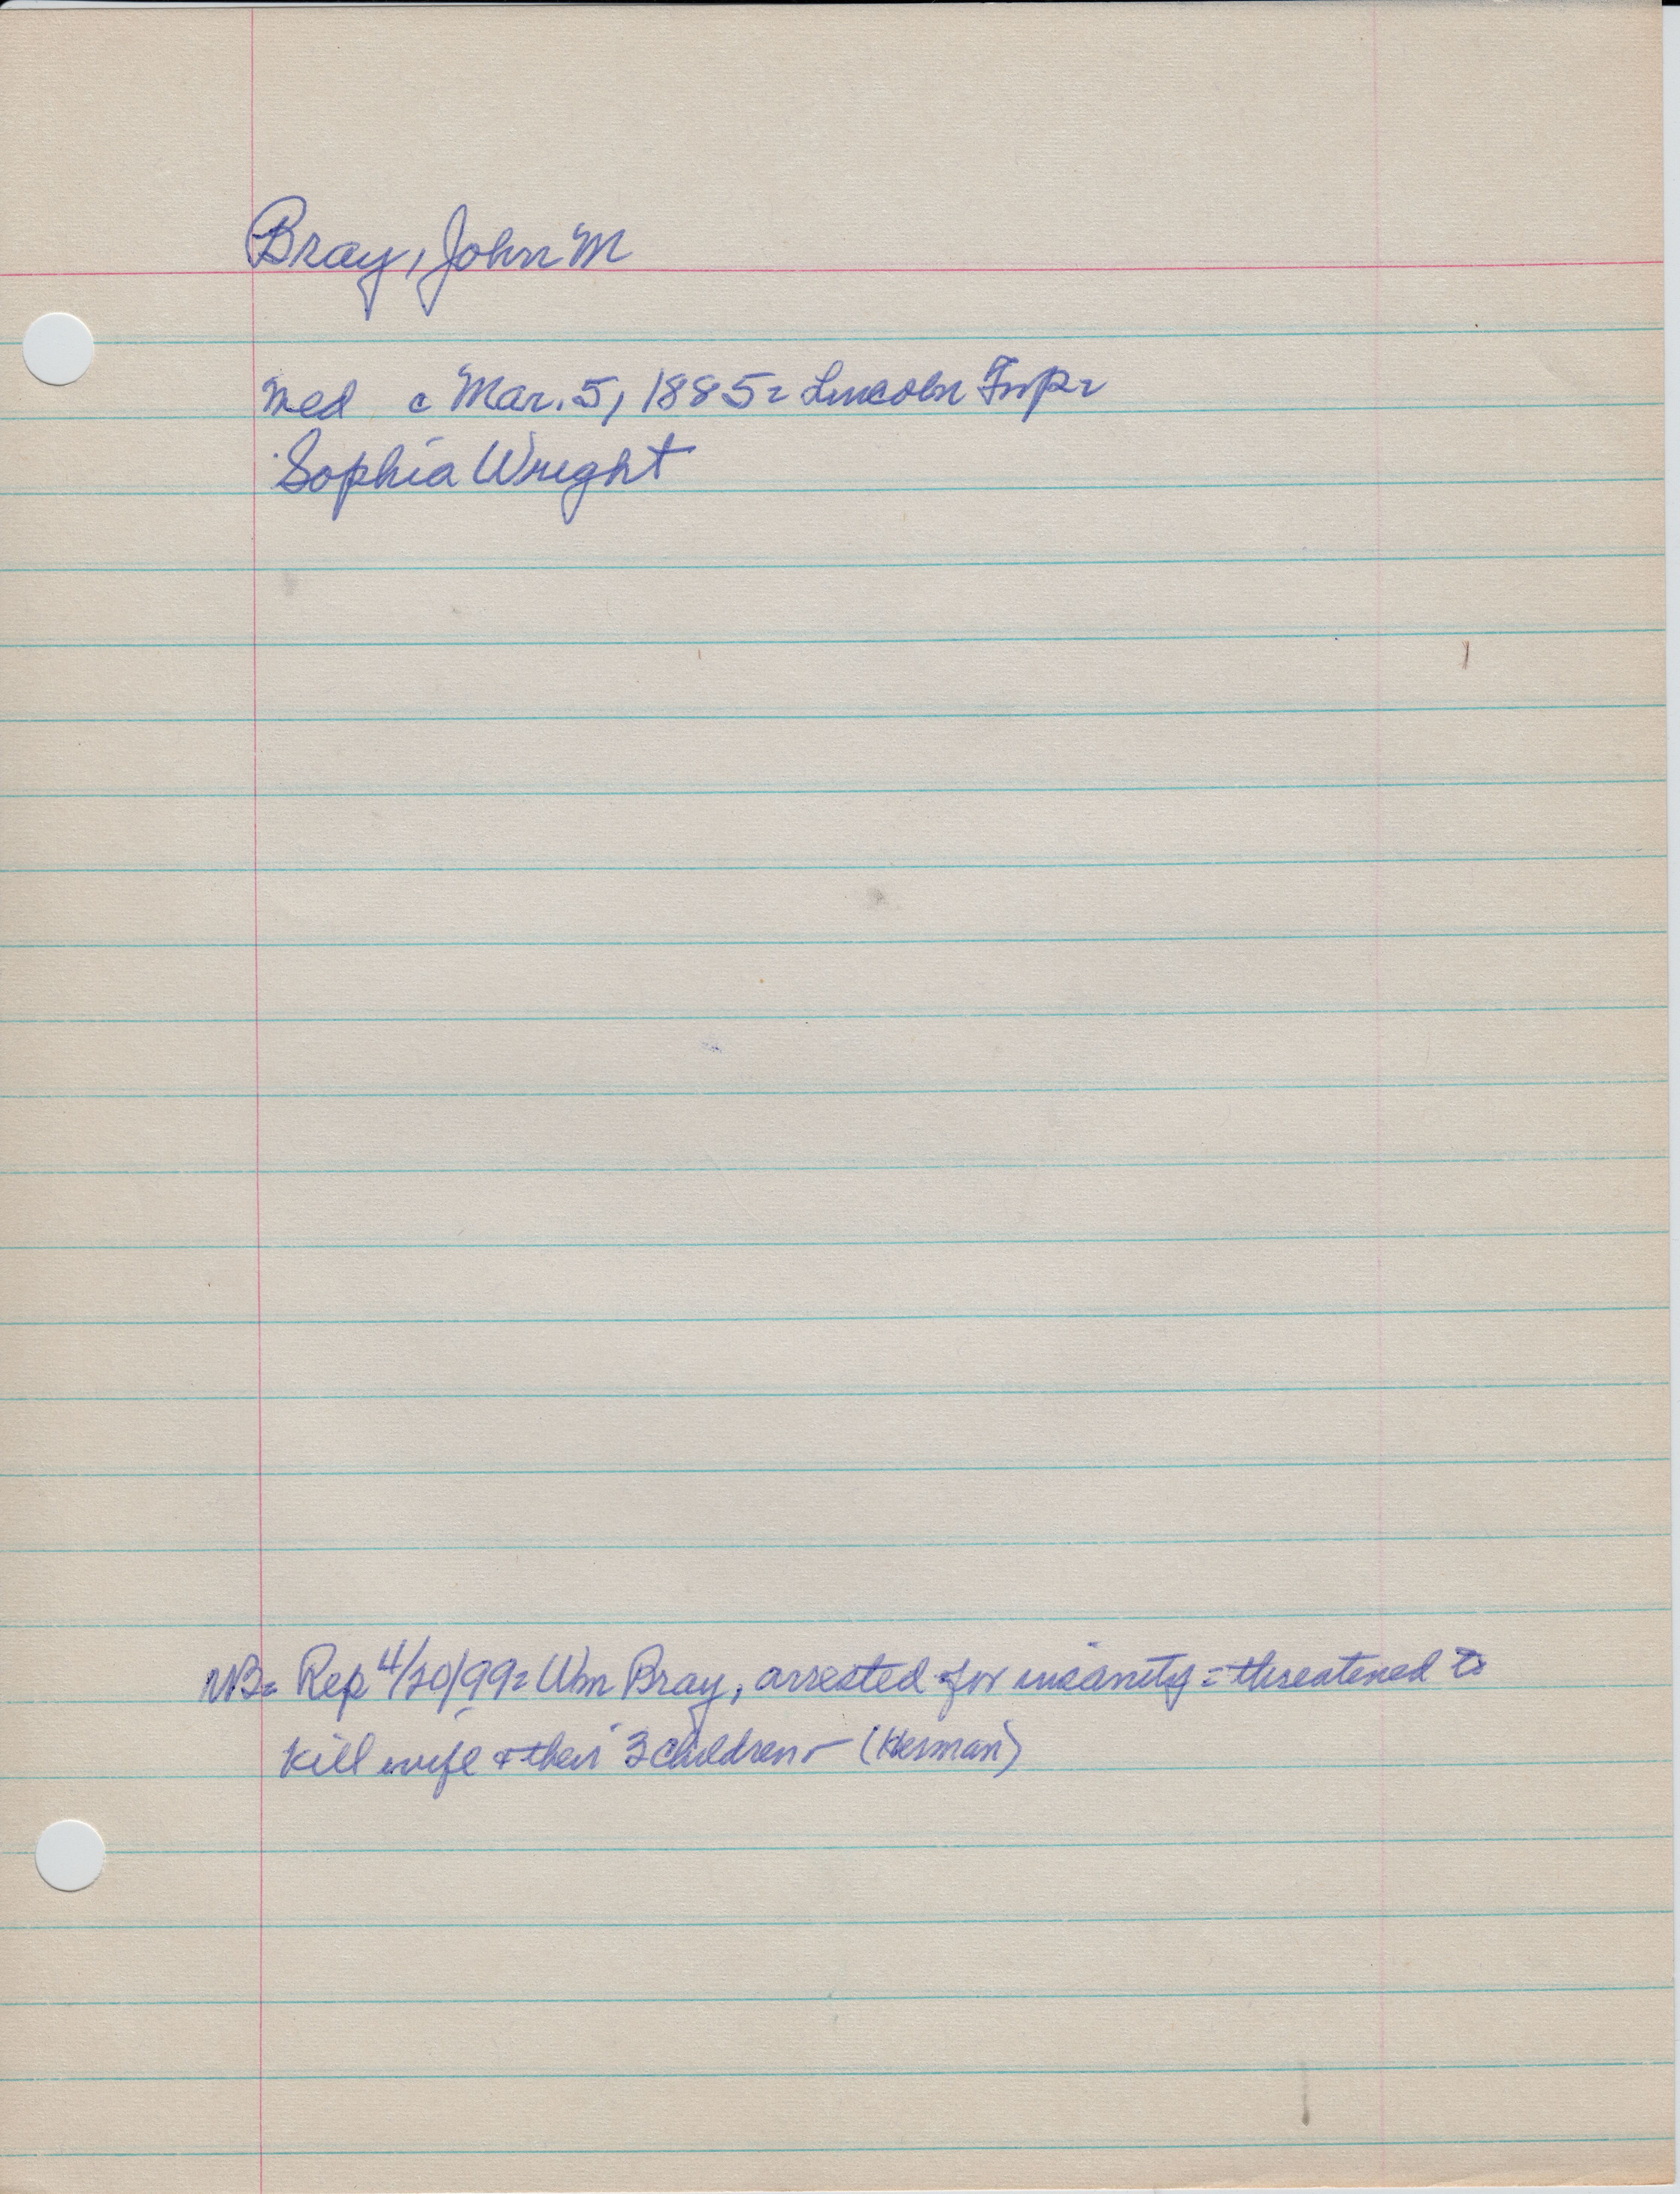 Bray, John M
med c Mar. 5, 1885 = Lincoln Twp =
Sophia Wright
NB = Rep 4/20/99 = Wm Bray, arrested for insanity = threatened to
kill wife & their 3 children - (Herman)